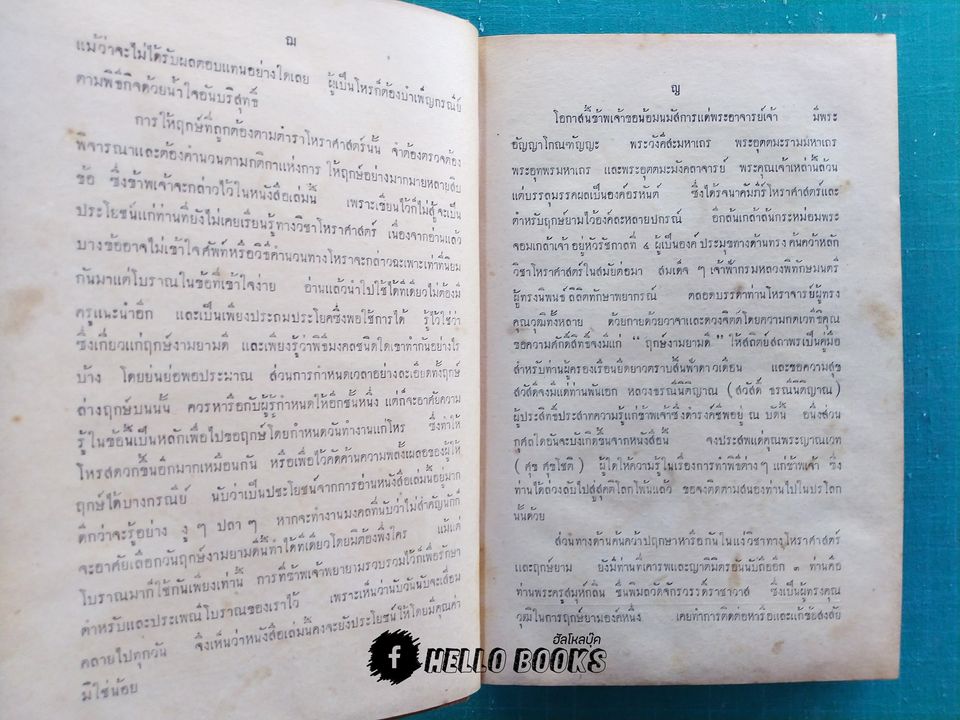 ฌ
แม้ว่าจะไม่ได้รับผลตอบแทนอย่างใดเลย ผู้เป็นโหรก็ต้องบำเพ็ญกรณีย์
ตามพิธีกิจด้วยน้ำใจอันบริสุทธิ์
การให้ฤกษ์ที่ถูกต้องตามตำราโหราศาสตร์นั้น จำต้องตรวจต้อง
พิจารณาและต้องคำนวนตามกติกาแห่งการ ให้ฤกษ์อย่างมากมายหลายสิบ
ข้อ ซึ่งข้าพเจ้าจะกล่าวไว้ในหนังสือเล่มนี้ เพราะเขียนไว้ก็ไม่สู้จะเป็น
ประโยชน์แก่ท่านที่ยังไม่เคยเรียนรู้ทางวิชาโหราศาสตร์ เนื่องจากอ่านแล้ว
บางข้ออาจไม่เข้าใจศัพท์หรือวิธีคำนวนทางโหราจะกล่าวฉะเพาะเท่าที่นิยม
กันมาแต่โบราณในข้อที่เข้าใจง่าย อ่านแล้วนำไปใช้ได้ทีเดียวไม่ต้องมี
ครูแนะนำอีก และเป็นเพียงประถมประโยคซึ่งพอใช้การได้ รู้ไว้ใช่ว่า
ซึ่งเกี่ยวแก่ฤกษ์งามยามดี และเพียงรู้ว่าพิธีมงคลชนิดใดเขาทำกันอย่างไร
บ้าง โดยย่นย่อพอประมาณ ส่วนการกำหนดเวลาอย่างละเอียดทั้งฤกษ์
ล่างฤกษ์บนนั้น ควรหารือกับผู้รู้กำหนดให้อีกชั้นหนึ่ง แต่ก็จะอาศัยความ
รู้ในข้อนี้เป็นหลักเพื่อไปขอฤกษ์โดยกำหนดวันทำงานแก่โหร ซึ่งทำให้
โหรสดวกขึ้นอีกมากเหมือนกัน หรือเพื่อไว้คัดค้านความพลั้งเผลอของผู้ให้
ฤกษ์ได้บางกรณีย์ นับว่าเป็นประโยชน์จากการอ่านหนังสือเล่มนี้อยู่มาก
ดีกว่าจะรู้อย่าง งู ๆ ปลา ๆ หากจะทำงานมงคลที่นับว่าไม่สำคัญนักก็
จะอาศัยเลือกวันฤกษ์งามยามดีนี้ทำได้ทีเดียวโดยมิต้องพึ่งใคร แม้แต่
โบราณมาก็ใช้กันเพียงเท่านั้น การที่ข้าพเจ้าพยายามรวบรวมไว้ก็เพื่อรักษา
ตำหรับและประเพณีโบราณของเราไว้ เพราะเห็นว่านับวันนับจะเสื่อม
คลายไปทุกวัน จึงเห็นว่าหนังสือเล่มนี้คงจะยังประโยชน์ให้โดยมีคุณค่า
มิใช่น้อย
ญ
โอกาสนี้ข้าพเจ้าขอน้อมนมัสการแด่พระอาจารย์เจ้า มีพระ
อัญญาโกณฑัญญะ พระวังคีสะมหาเถร พระอุตตมะรามมหาเถร
พระอุทุพรมหาเถร และพระอุตตมะมังคลาจารย์ พระคุณเจ้าเหล่านี้ล้วน
แต่บรรลุมรรคผลเป็นองค์อรหันต์ ซึ่งได้รจนาคัมภีร์โหราศาสตร์และ
ตำหรับฤกษ์ยามไว้องค์ละหลายปกรณ์ อีกล้นเกล้าล้นกระหม่อมพระ
จอมเกล้าเจ้าอยู่หัวรัชกาลที่ ๔ ผู้เป็นองค์ประมุขทางด้านทรงค้นคว้าหลัก
วิชาโหราศาสตร์ในสมัยต่อมา สมเด็จ ๆ เจ้าฟ้ากรมหลวงพิทักษมนตรี
ผู้ทรงนิพนธ์ลิลิตทักษาพยากรณ์ ตลอดบรรดาท่านโหราจารย์ผู้ทรง
คุณวุฒิทั้งหลาย ด้วยกายด้วยวาจาและดวงจิตต์โดยความกตเวทิคุณ
ขอความศักดิ์สิทธิ์จงมีแก่ “ ฤกษ์งามยามดี ” ให้สถิตย์สถาพรเป็นคู่มือ
สำหรับท่านผู้ครองเรือนยืดยาวตราบสิ้นฟ้าดาวเดือน และขอความสุข
สวัสดีจึงมีแด่ท่านพันเอก หลวงธรณีนิติญาณ ( สวัสดิ์ ธรณีนิติญาณ )
ผู้ประสิทธิ์ประสาทความรู้แก่ข้าพเจ้าซึ่งดำรงค์ชีพอยู่ ณ บัดนี้ อนึ่งส่วน
กุศลใดอันจะบังเกิดขึ้นจากหนังสือนี้ จงประสพแด่คุณพระญาณเวท
( ศุข ศุขโชติ ) ผู้ใดให้ความรู้ในเรื่องการทำพิธีต่าง ๆ แก่ข้าพเจ้า ซึ่ง
ท่านได้ล่วงลับไปสู่สุคติโลกโพ้นแล้ว ขอจงติดตามสนองท่านไปในปรโลก
นั้นด้วย
ส่วนทางด้านค้นคว้าปฤกษาหารือกันในแง่วิชาทางโหราศาสตร์
และฤกษ์ยาม ยังมีท่านที่เคารพและญาติมิตรอันนับถืออีก ๓ ท่านคือ
ท่านพระครูสมุหกลิ่น ชื่นพิมลวัดจักรวรรดิ์ราชาวาส ซึ่งเป็นผู้ทรงคุณ
วุฒิในการฤกษ์ยามองค์หนึ่ง เคยทำการติดต่อหารือและแก้ข้อสงสัย
ฮัลโหลบุ๊ค
HELLO BOOKS